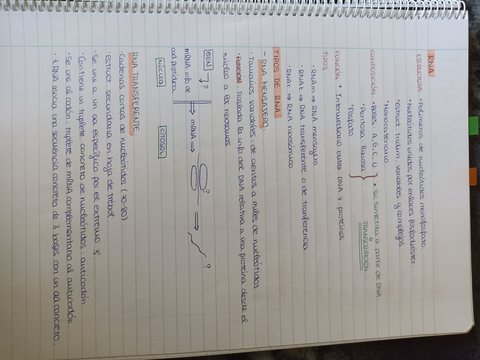 RNA
ESTRUCTURA • Polímeros de nucleótidos monofosfato
• Nucleótidos unidos por enlaces fosfodiéster
• Monocatenario
• Estruct tridim. variables y complejas
COMPOSICIÓN • Bases A, G, C, U
• Pentosa Ribosa
• Fosfato
• Se sintetiza a partir de DNA
TRANSCRIPCIÓN
FUNCIÓN • Intermediario entre DNA y proteínas
TIPOS
• RNAm ⇒ RNA mensajero
• RNAt ⇒ RNA transferente o de tranferencia
• RNAr ⇒ RNA ribosómico
TIPOS DE RNA
- RNA MENSAJERO
• Tamaños variables, de cientos a miles de nucleótidos
• Función Traslada la info del DNA relativa a una proteína desde el
núcleo a los ribosomas
DNA ?
mRNA info de ⇒ mRNA ⇒ ? ⇒ ?
cod peptídica
NÚCLEO CITOSOL
RNA TRANSFERENTE
• Cadenas cortas de nucleótidos (70-90)
• Estruct secundaria en hoja de trébol
• Se une a un aa específico por el extremo 3'
• Contiene un triplete concreto de nucleótidos: anticodón
• Se une al codón, triplete de mRNA complementario al anticodón
• tRNA asocia una secuencia concreta de 3 bases con un aa concreto